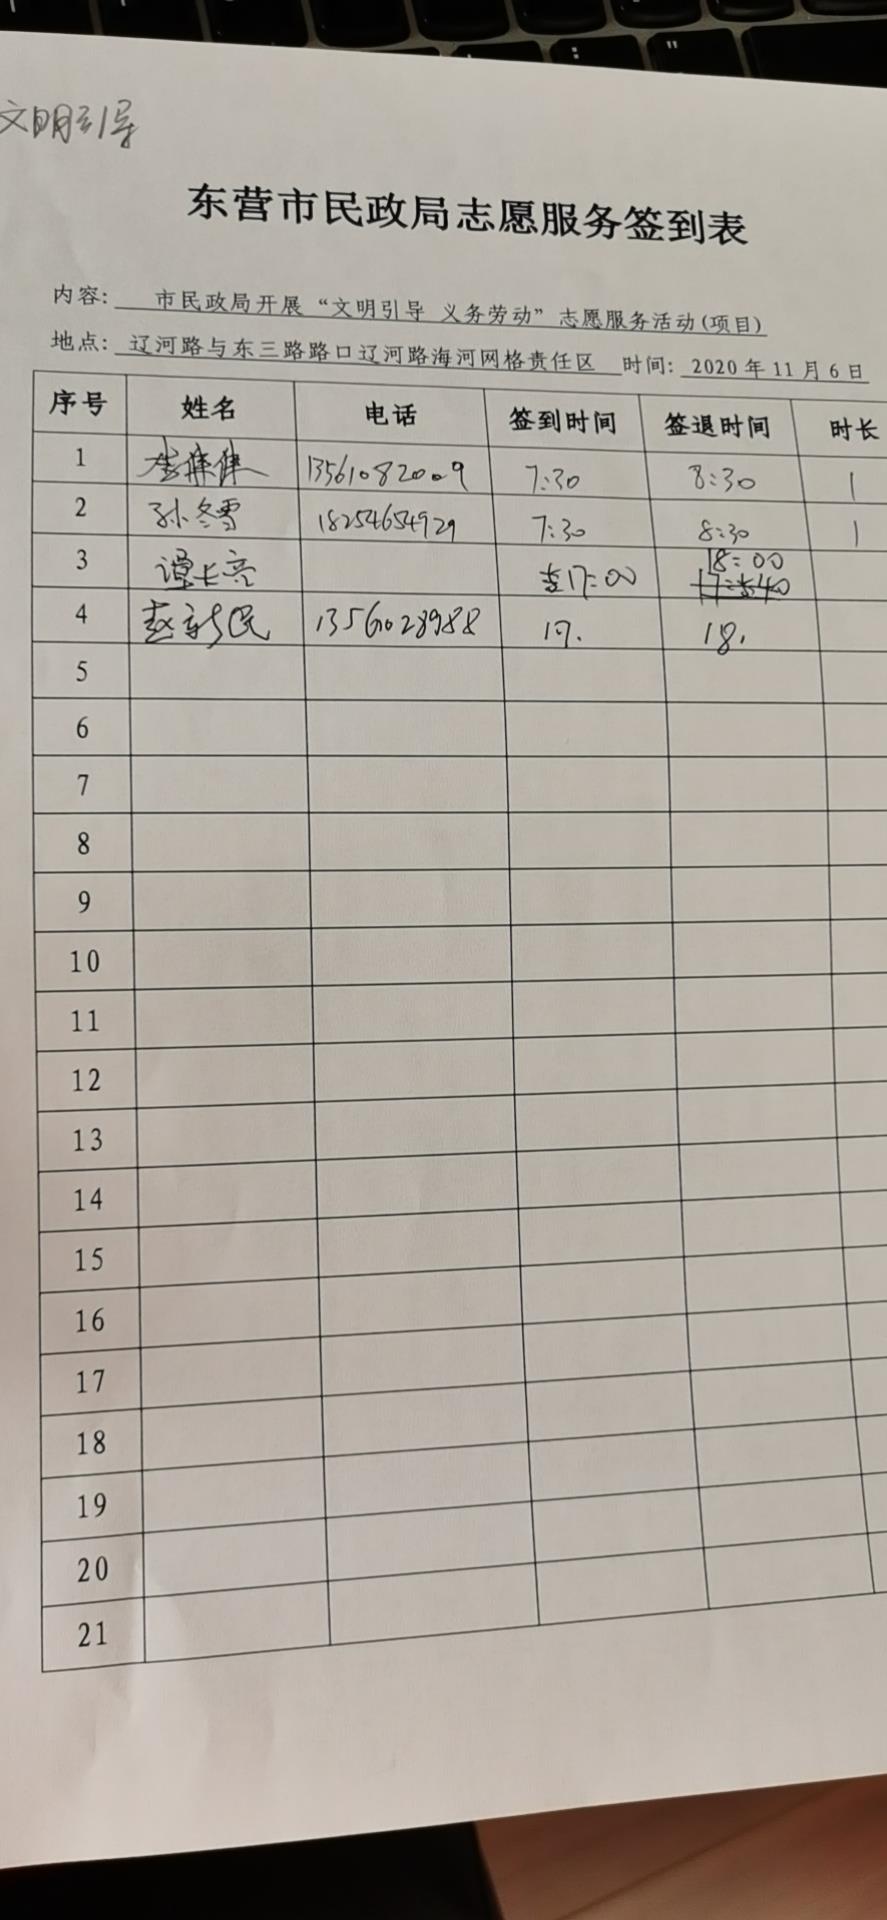 文明引导
东营市民政局志愿服务签到表
内容: 市民政局开展“文明引导 义务劳动”志愿服务活动(项目)
地点: 辽河路与东三路路口辽河路海河网格责任区 时间: 2020年11月6日
序号 姓名 电话 签到时间 签退时间 时长
1 13561082009 7:30 8:30 1
2 孙冬雪 18254654929 7:30 8:30 1
3 谭长亮 17:00 18:00
4 赵新民 13561028988 17. 18.
5
6
7
8
9
10
11
12
13
14
15
16
17
18
19
20
21